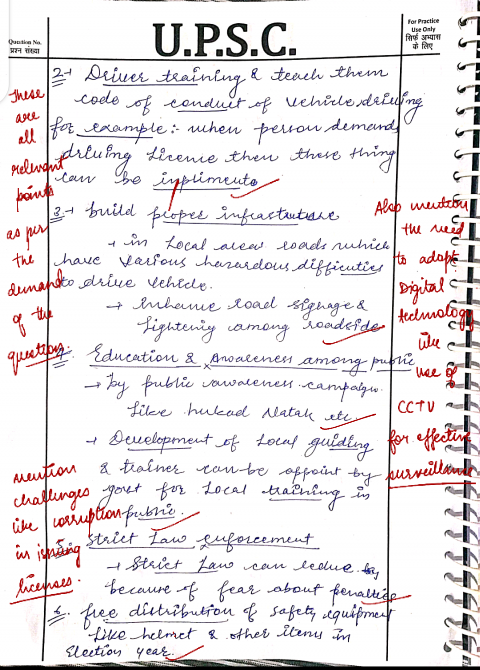 Question No.
प्रश्न संख्या
U.P.S.C.
For Practice
Use Only
सिर्फ अभ्यास
के लिए
2→ Driver training & teach them
code of conduct of vehicle driving
for example:- when person demands
driving license then these thing
can be implimente
3→ build proper infrastructure
→ in Local area roads which
have various hazardous difficuties
to drive vehicle.
→ Enhance road signage &
Lightening among roadside
4. Education & Awareness among public
→ by public awareness campaign
Like nukad Natak etc.
→ Development of Local guiding
& trainer can be appoint by
govt for Local training in
public.
5. Strict Law enforcement
→ Strict Law can reduce by
because of fear about penalties
6. free distribution of safety equipment
Like helmet & other items in
Election year.
These
are
all
relevant
points
as per
the
demand
of the
question.
mention
challenges
like corruption
in issuing
licenses.
Also mention
the need
to adopt
Digital
technology
like
use of
CCTV
for effective
surveillance